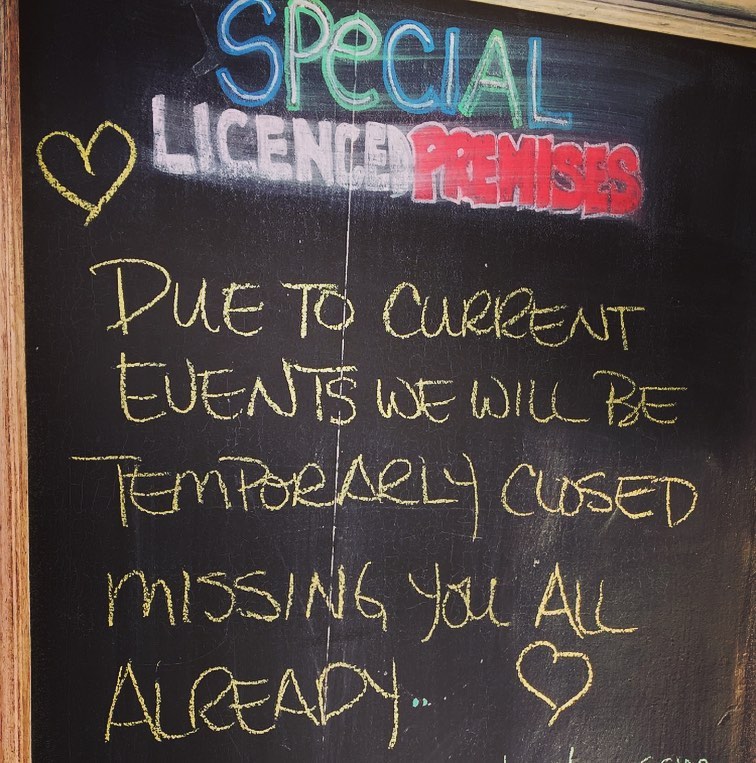 SPECIAL
LICENCED PREMISES
DUE TO CURRENT
EVENTS WE WILL BE
TEMPORARLY CLOSED
MISSING YOU ALL
ALREADY..